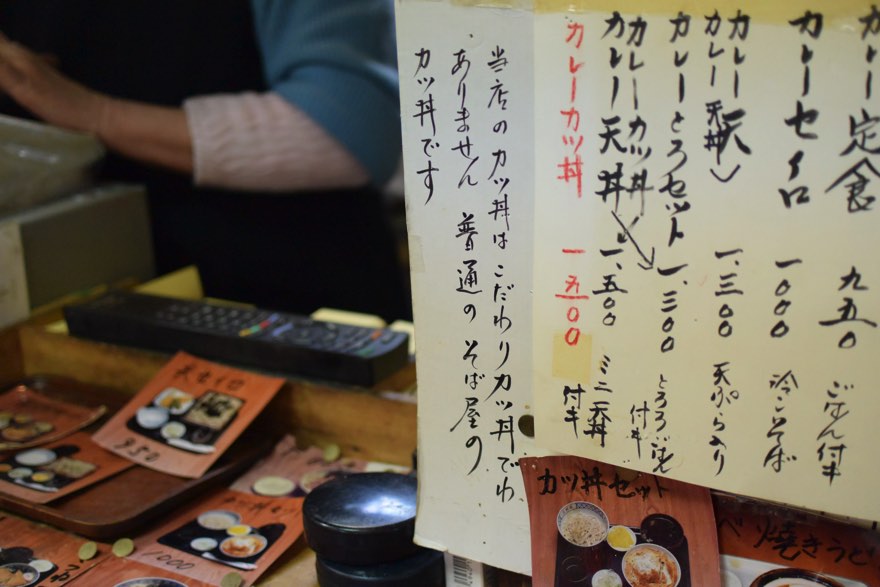 カレー定食 九五〇 ごはん付キ
カレーセイロ 一〇〇〇 冷こそば
カレー天
カレー天丼 一、三〇〇 天ぷら入り
カレーとろセット 一、三〇〇 とろろ 付キ
カレーカツ丼
カレー天丼 一、五〇〇 ミニ天丼 付キ
カレーカツ丼 一五〇〇
当店のカツ丼はこだわりカツ丼でわ
ありません 普通のそば屋の
カツ丼です
カツ丼セット
焼きうど
天セイロ
950
1000